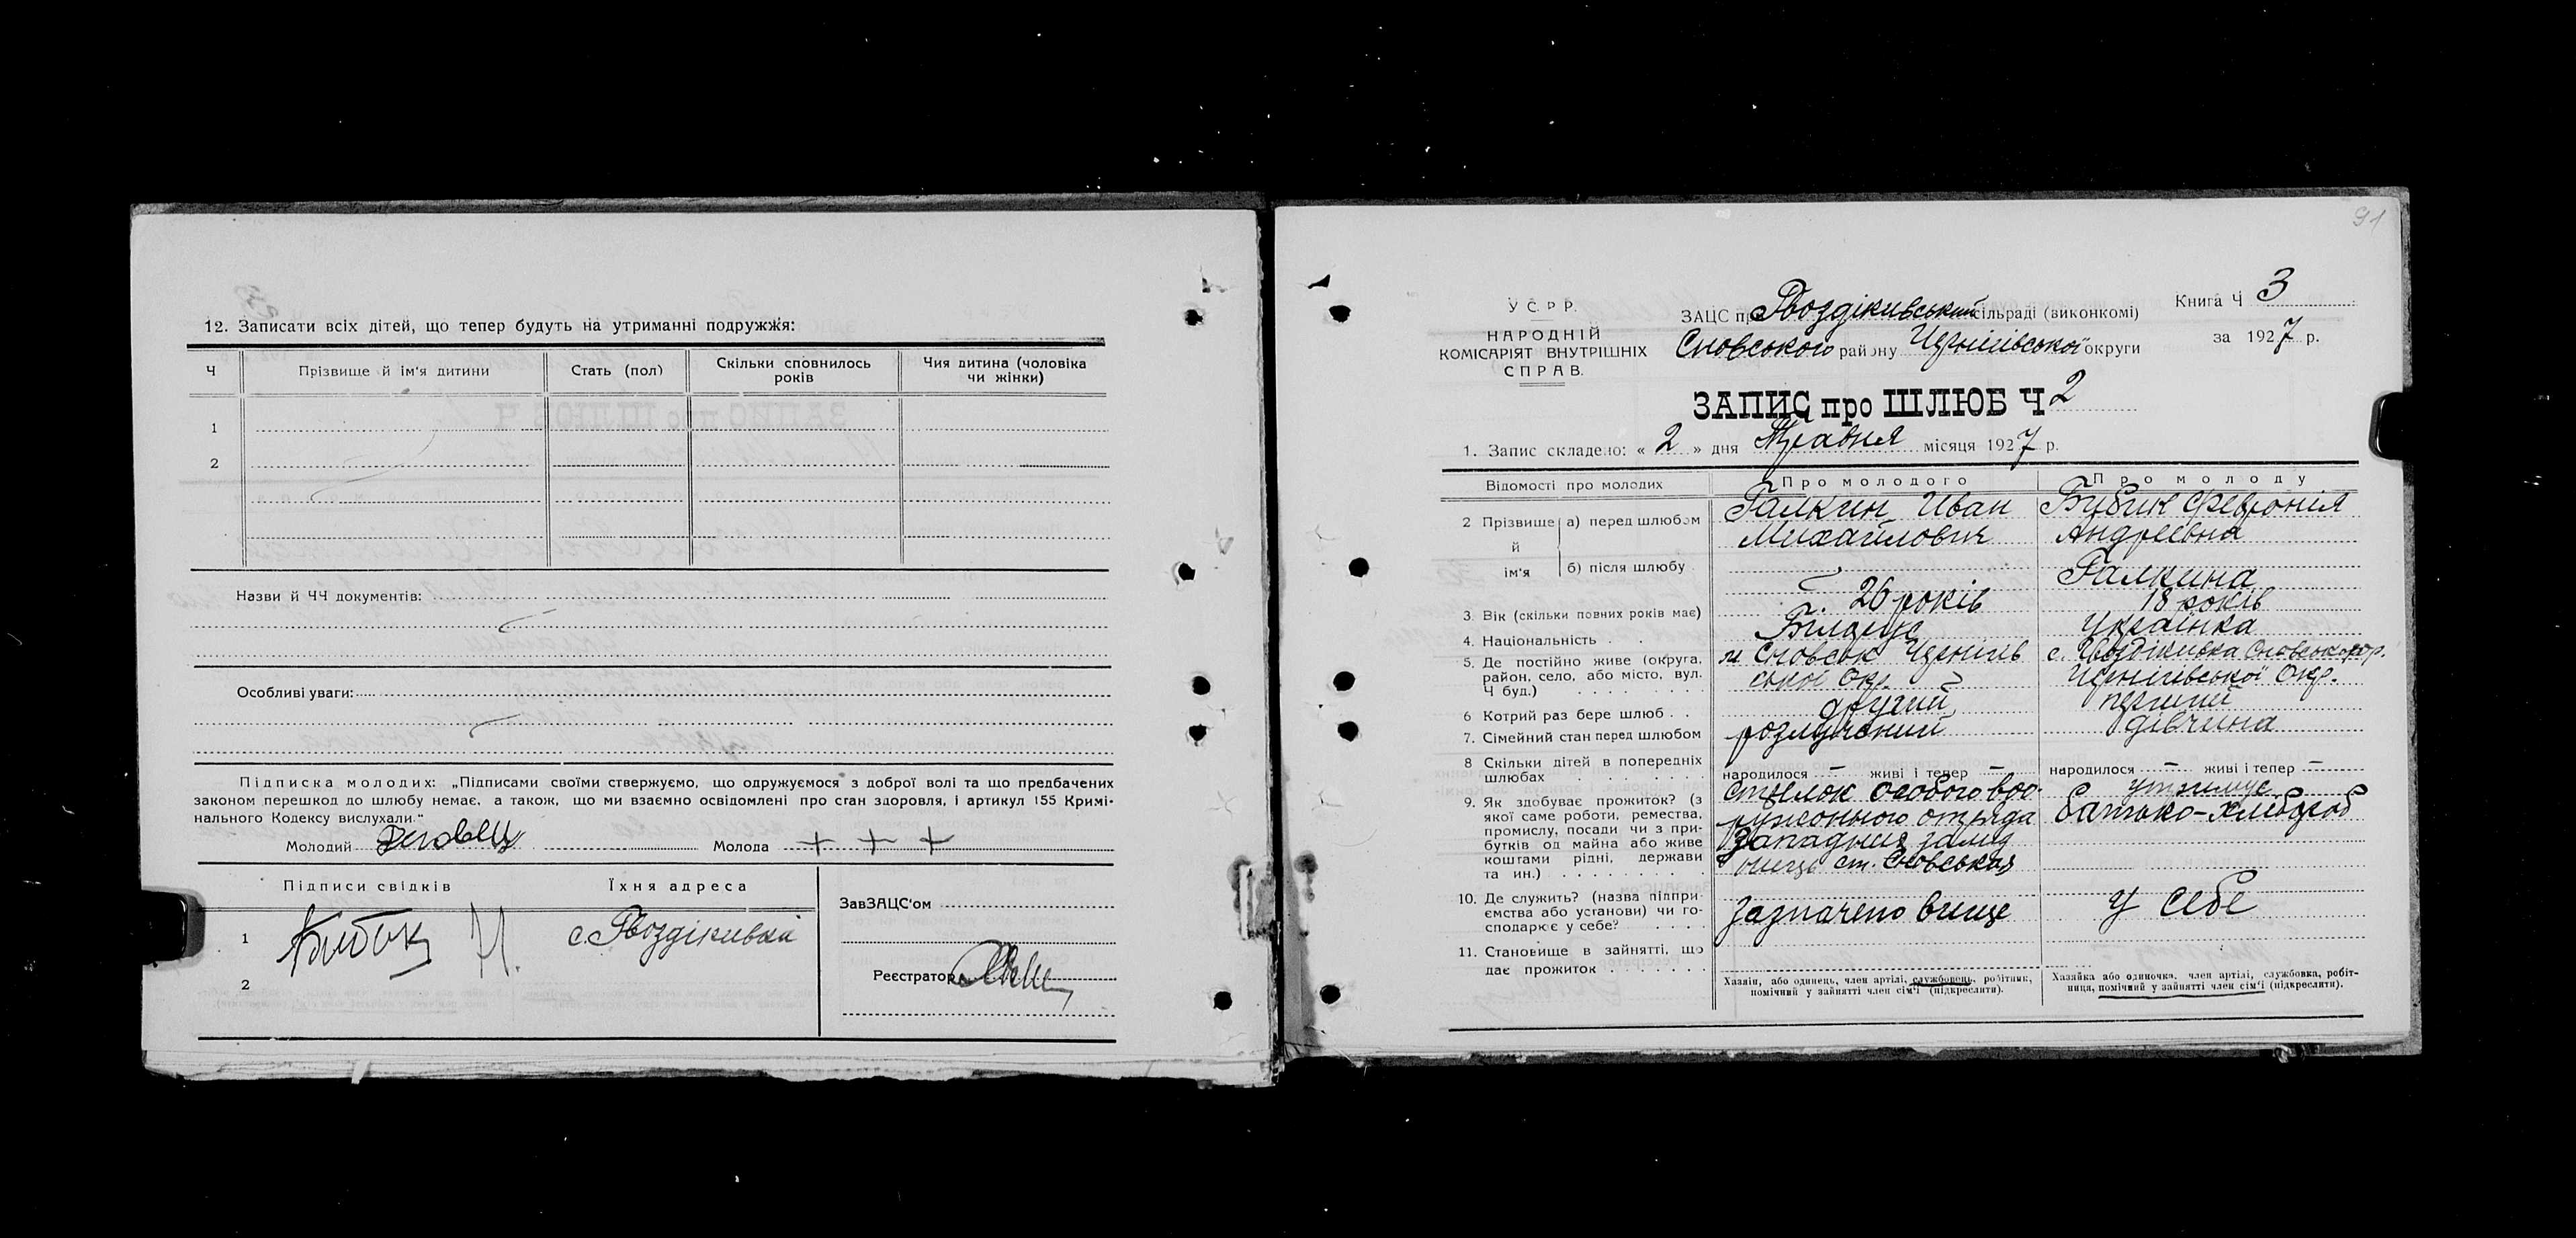 12. Записати всіх дітей, що тепер будуть на утриманні подружжя:
Ч
Прізвище й ім'я дитини
Стать (пол)
Скільки сповнилось років
Чия дитина (чоловіка чи жінки)
1
2
Назви й ЧЧ документів:
Особливі уваги:
Підписка молодих: „Підписами своїми ствержуємо, що одружуємося з доброї волі та що предбачених
законом перешкод до шлюбу немає, а також, що ми взаємно освідомлені про стан здоровля, і артикул 155 Кримі-
нального Кодексу вислухали."
Молодий
Молода + + +
Підписи свідків
Їхня адреса
1
с. Гвоздіківка
2
ЗавЗАЦС'ом
Реєстратор
91
У С. Р Р.
НАРОДНІЙ
КОМІСАРІЯТ ВНУТРІШНІХ
СПРАВ.
ЗАЦС при Гвоздіківський сільраді (виконкомі)
Сновського району Чернігівської округи
Книга Ч 3
за 1927 р.
ЗАПИС про ШЛЮБ Ч 2
1. Запис складено: « 2 » дня Травня місяця 1927 р.
Відомості про молодих
Про молодого
Про молоду
2 Прізвище й ім'я
а) перед шлюбом
Галкин Иван
Михайлович
Бибик Февронія
Андреевна
б) після шлюбу
Галкина
3. Вік (скільки повних років має)
26 років
18 років
4. Національність
Білорус
Українка
5. Де постійно живе (округа,
район, село, або місто, вул.
Ч буд.)
м Сновськ Чернігів
ської Окр.
с. Гвоздіківка Сновського р.
Чернигівської Окр.
6 Котрий раз бере шлюб
другий
перший
7. Сімейний стан перед шлюбом
розлучений
дівчина
8 Скільки дітей в попередніх
шлюбах
народилося — живі і тепер —
народилося — живі і тепер —
9. Як здобуває прожиток? (з
якої саме роботи, ремества,
промислу, посади чи з при-
бутків од майна або живе
коштами рідні, держави
та ин.)
стрелок особого воо-
руженного отряда
Западных
ст. Сновськая
утримує
батько-хлібороб
10. Де служить? (назва підпри-
ємства або установи) чи го-
сподарює у себе?
зазначено вище
у себе
11. Становище в зайнятті, що
дає прожиток
Хазяїн, або одинець, член артілі, службовець, робітник,
помічний у зайнятті член сім'ї (підкреслити).
Хазяйка або одиночка, член артілі, службовка, робіт-
ниця, помічний у зайнятті член сім'ї (підкреслити).